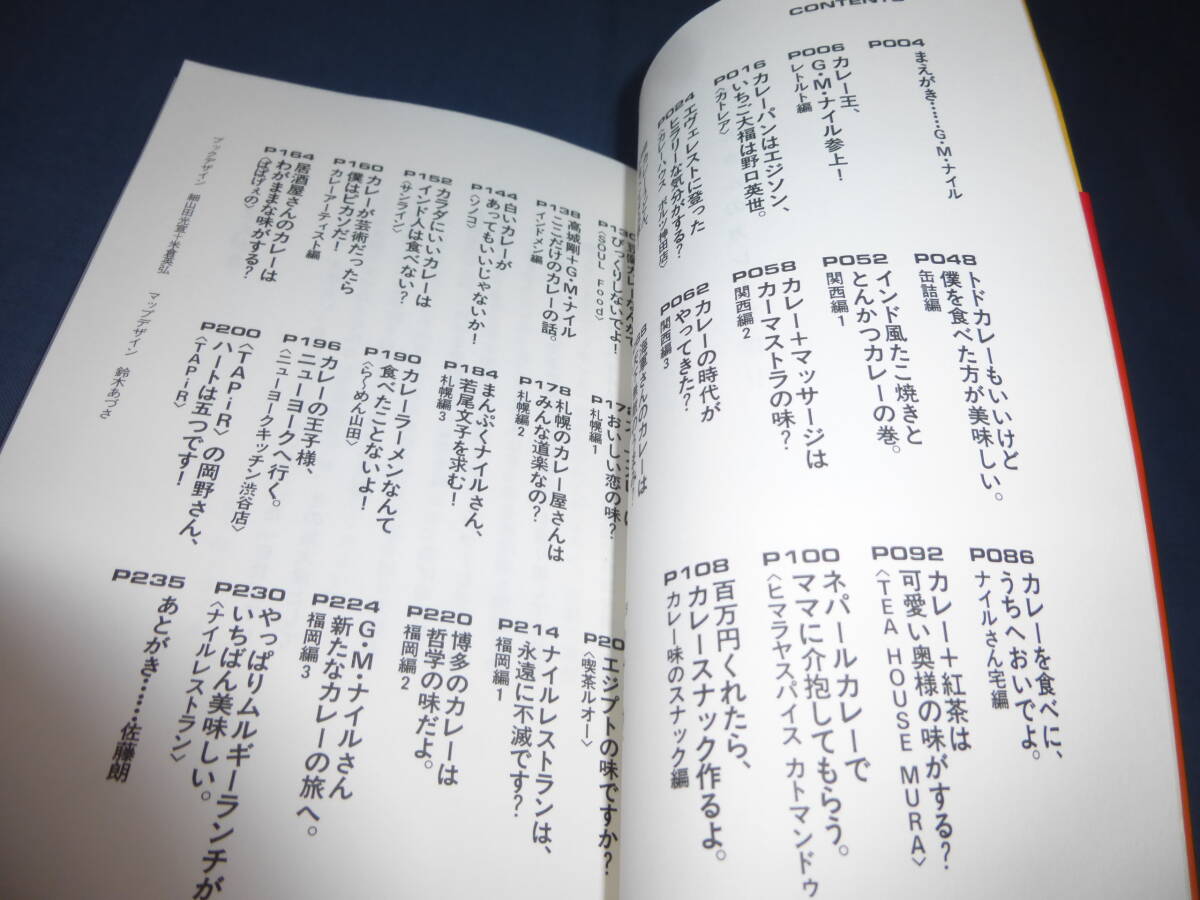 CONTENTS
P004
まえがき……G・M・ナイル
P006
カレー王、
G・M・ナイル参上!
レトルト編
P016
カレーパンはエジソン、
いちご大福は野口英世。
〈カトレア〉
P024
エヴェレストに登った
ヒラリーな気分がする?
〈カレーハウス ボルツ神田店〉
P048
トドカレーもいいけど
僕を食べた方が美味しい。
缶詰編
P052
インド風たこ焼きと
とんかつカレーの巻。
関西編1
P058
カレー+マッサージは
カーマストラの味?
関西編2
P062
カレーの時代が
やってきた?
関西編3
カレーは
P086
カレーを食べに、
うちへおいでよ。
ナイルさん宅編
P092
カレー+紅茶は
可愛い奥様の味がする?
〈TEA HOUSE MURA〉
P100
ネパールカレーで
ママに介抱してもらう。
〈ヒマラヤスパイス カトマンドゥ
P108
百万円くれたら、
カレースナック作るよ。
カレー味のスナック編
びっくりしないでよ!
〈SOUL Food〉
P138
高城剛+G・M・ナイル
ここだけのカレーの話。
インドメン編
P144
白いカレーが
あってもいいじゃないか!
〈ソノコ〉
P152
カラダにいいカレーは
インド人は食べない?
〈サンライン〉
P160
カレーが芸術だったら
僕はピカソだ!
カレーアーティスト編
P164
居酒屋さんのカレーは
わがままな味がする?
〈ぱぱげぇの〉
おいしい恋の味?
札幌編1
P178
札幌のカレー屋さんは
みんな道楽なの?
札幌編2
P184
まんぷくナイルさん、
若尾文子を求む!
札幌編3
P190
カレーラーメンなんて
食べたことないよ!
〈ら〜めん山田〉
P196
カレーの王子様、
ニューヨークへ行く。
〈ニューヨークキッチン渋谷店〉
P200
〈TAPiR〉の岡野さん、
ハートは五つです!
〈TAPiR〉
P20
エジプトの味ですか?
〈喫茶ルオー〉
P214
ナイルレストランは、
永遠に不滅です?
福岡編1
P220
博多のカレーは
哲学の味だよ。
福岡編2
P224
G・M・ナイルさん
新たなカレーの旅へ。
福岡編3
P230
やっぱりムルギーランチが
いちばん美味しい。
〈ナイルレストラン〉
P235
あとがき……佐藤朗
ブックデザイン 細山田光宣+米倉英弘
マップデザイン 鈴木あづさ